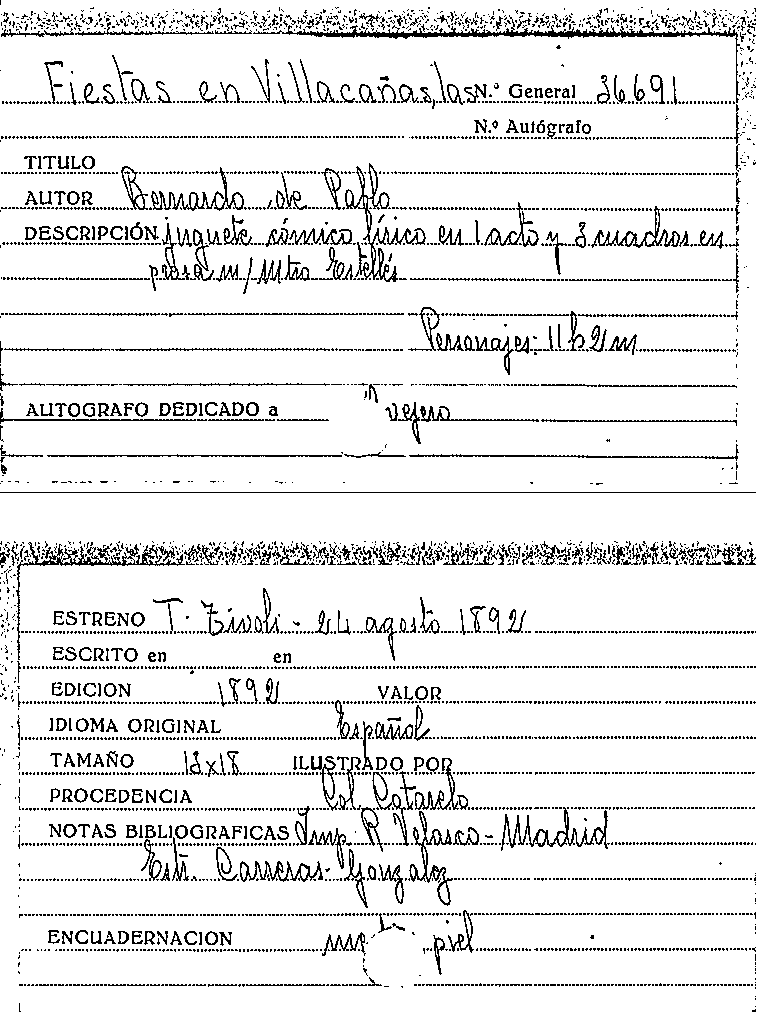 Fiestas en Villacañas, las N.º General 36691
N.º Autógrafo
TITULO
AUTOR Bernardo de Pablo
DESCRIPCIÓN juguete cómico lírico en 1 acto y 3 cuadros en
prosa m/ Mtro Estellés
Personajes: 11 h 2 m
AUTOGRAFO DEDICADO a vejero
ESTRENO T. Tívoli - 24 agosto 1892
ESCRITO en en
EDICION 1892 VALOR
IDIOMA ORIGINAL Español
TAMAÑO 13x18 ILUSTRADO POR
PROCEDENCIA Col. Cotarelo
NOTAS BIBLIOGRAFICAS Imp. R Velasco - Madrid
Estr. Carreras - Gonzalez
ENCUADERNACION piel